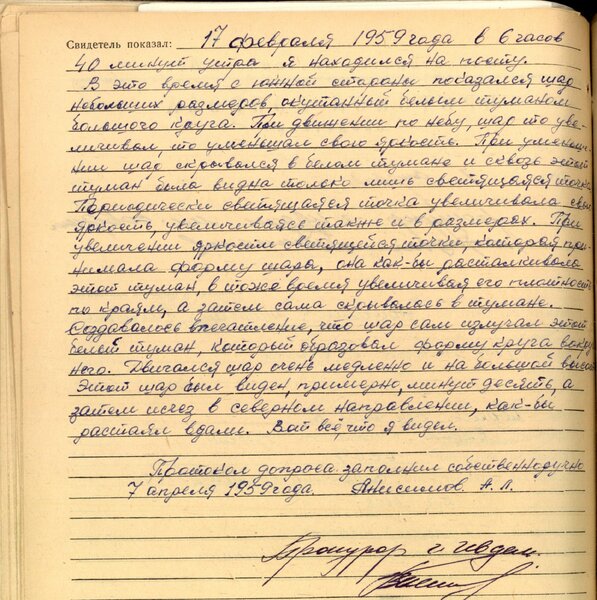 Свидетель показал: 17 февраля 1959 года в 6 часов
40 минут утра я находился на посту.
В это время с южной стороны показался шар
небольших размеров, окутанный белым туманом
большого круга. При движении по небу, шар то уве-
личивал, то уменьшал свою яркость. При уменьше-
нии шар скрывался в белом тумане и сквозь этот
туман была видна только лишь светящаяся точка.
Периодически светящаяся точка увеличивала свою
яркость, увеличиваясь также и в размерах. При
увеличении яркости светящейся точки, которая при-
нимала форму шара, она как-бы расталкивала
этот туман, в тоже время увеличивая его плотность
по краям, а затем сама скрывалась в тумане.
Создавалось впечатление, что шар сам излучал этот
белый туман, который образовал форму круга вокруг
него. Двигался шар очень медленно и на большой высоте
Этот шар был виден, примерно, минут десять, а
затем исчез в северном направлении, как-бы
растаял вдали. Вот всё что я видел.
Протокол допроса заполнил собственноручно
7 апреля 1959 года. Анисимов А. Л.
Прокурор г. Ивдель